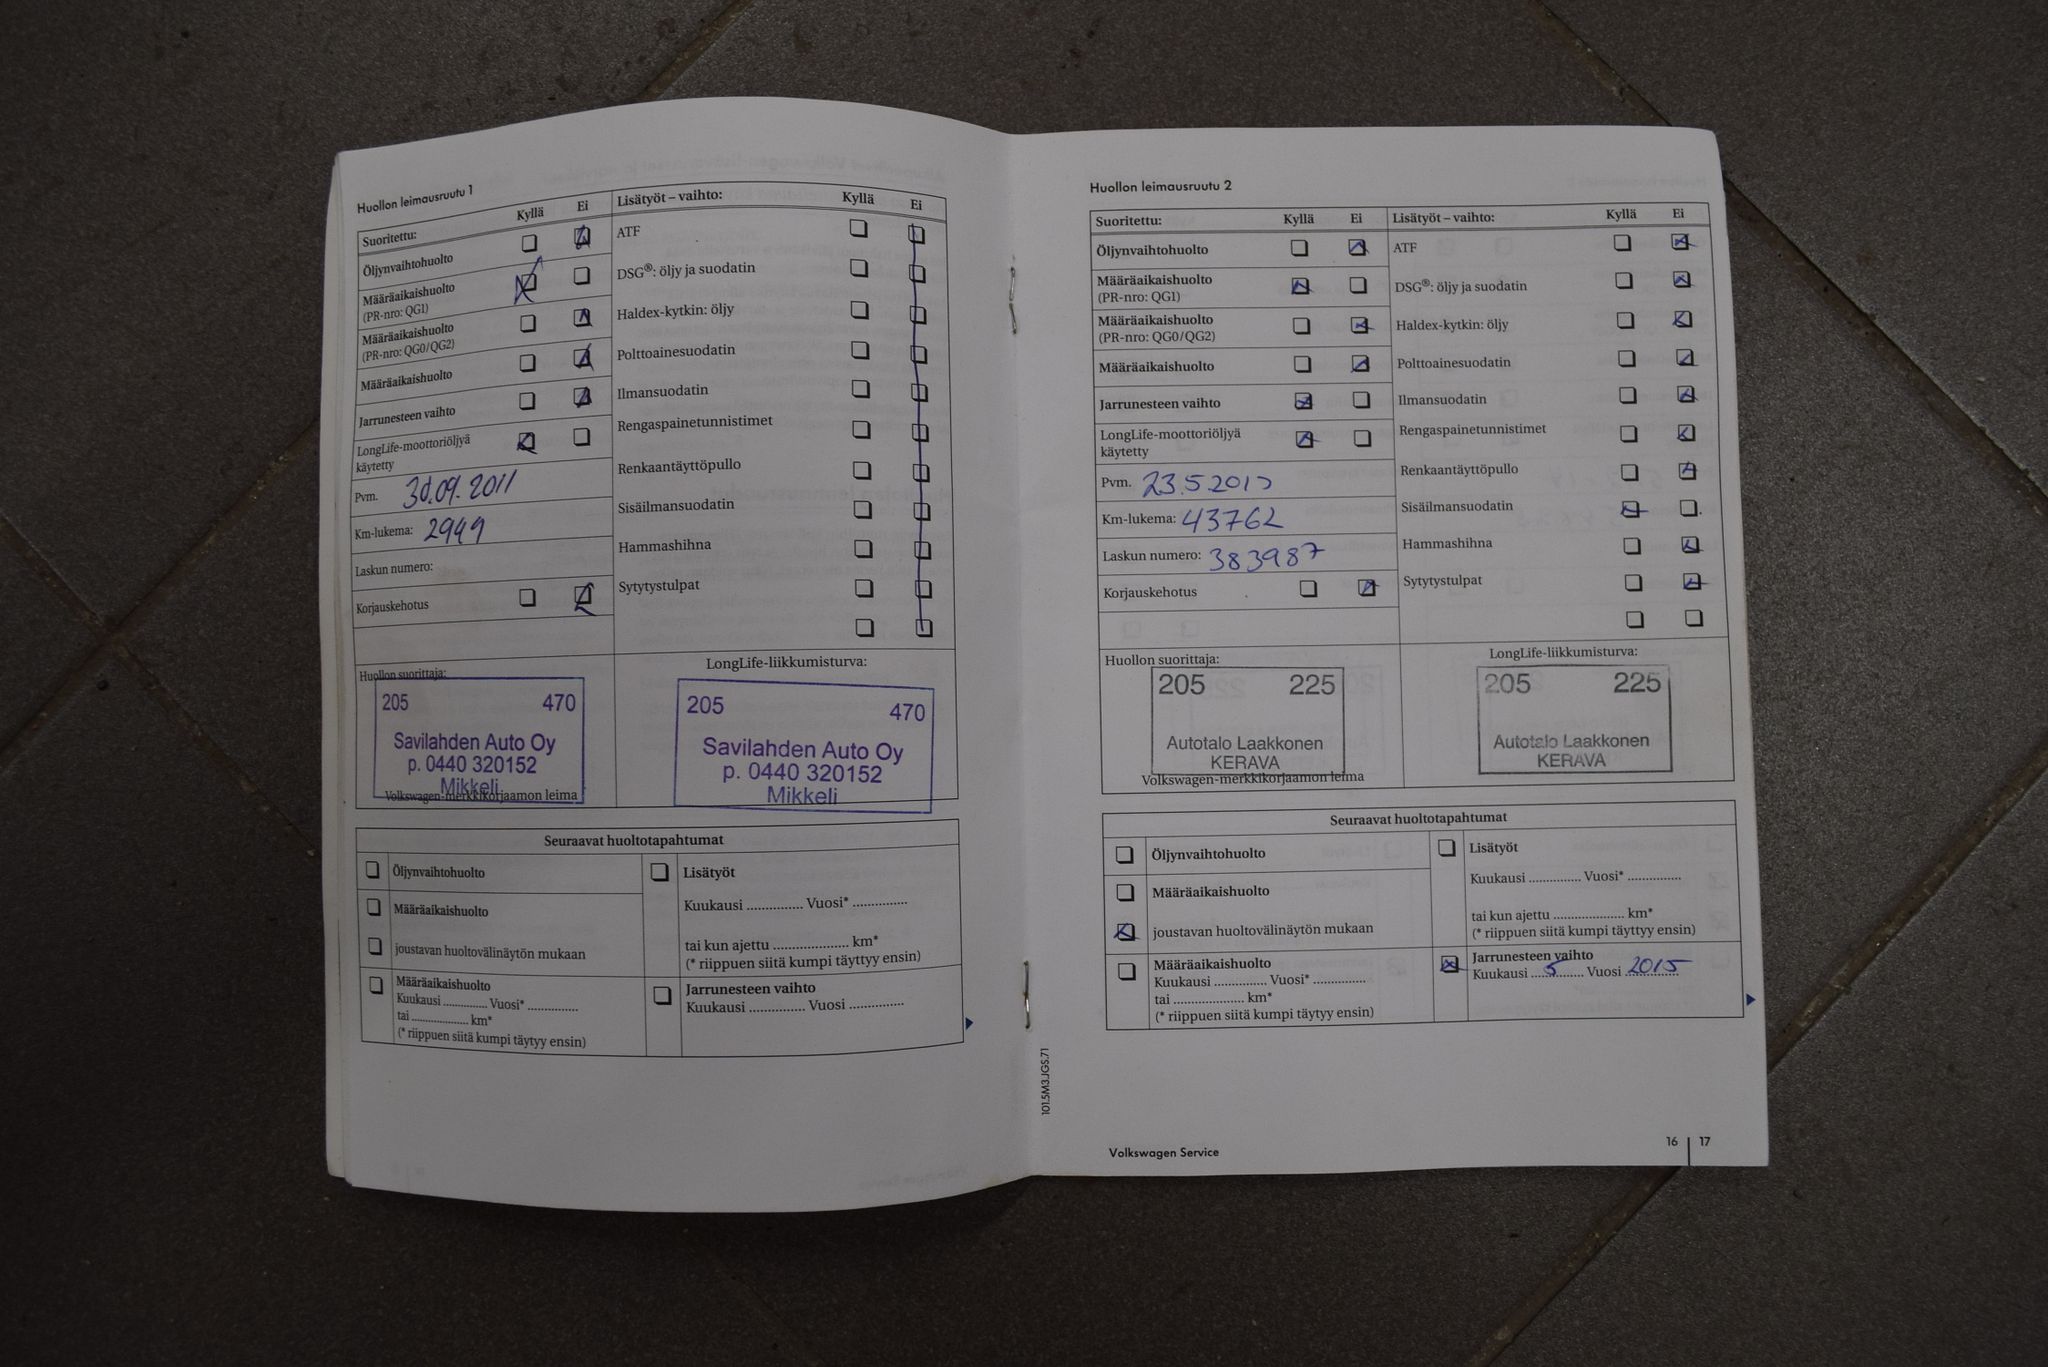 Huollon leimausruutu 1
Suoritettu: Kyllä Ei
Öljynvaihtohuolto
Määräaikaishuolto
(PR-nro: QG1)
Määräaikaishuolto
(PR-nro: QG0/QG2)
Määräaikaishuolto
Jarrunesteen vaihto
LongLife-moottoriöljyä
käytetty
Pvm. 30.09.2011
Km-lukema: 2949
Laskun numero:
Korjauskehotus
Lisätyöt – vaihto: Kyllä Ei
ATF
DSG®: öljy ja suodatin
Haldex-kytkin: öljy
Polttoainesuodatin
Ilmansuodatin
Rengaspainetunnistimet
Renkaantäyttöpullo
Sisäilmansuodatin
Hammashihna
Sytytystulpat
Huollon suorittaja:
205 470
Savilahden Auto Oy
p. 0440 320152
Mikkeli
Volkswagen-merkkikorjaamon leima
LongLife-liikkumisturva:
205 470
Savilahden Auto Oy
p. 0440 320152
Mikkeli
Seuraavat huoltotapahtumat
Öljynvaihtohuolto
Määräaikaishuolto
joustavan huoltovälinäytön mukaan
Määräaikaishuolto
Kuukausi ............. Vuosi* ...............
tai ................. km*
(* riippuen siitä kumpi täytyy ensin)
Lisätyöt
Kuukausi ............... Vuosi* ...............
tai kun ajettu .................... km*
(* riippuen siitä kumpi täyttyy ensin)
Jarrunesteen vaihto
Kuukausi ............... Vuosi ...............
Huollon leimausruutu 2
Suoritettu: Kyllä Ei
Öljynvaihtohuolto
Määräaikaishuolto
(PR-nro: QG1)
Määräaikaishuolto
(PR-nro: QG0/QG2)
Määräaikaishuolto
Jarrunesteen vaihto
LongLife-moottoriöljyä
käytetty
Pvm. 23.5
Km-lukema: 43762
Laskun numero: 383987
Korjauskehotus
Lisätyöt – vaihto: Kyllä Ei
ATF
DSG®: öljy ja suodatin
Haldex-kytkin: öljy
Polttoainesuodatin
Ilmansuodatin
Rengaspainetunnistimet
Renkaantäyttöpullo
Sisäilmansuodatin
Hammashihna
Sytytystulpat
Huollon suorittaja:
205 225
Autotalo Laakkonen
KERAVA
Volkswagen-merkkikorjaamon leima
LongLife-liikkumisturva:
205 225
Autotalo Laakkonen
KERAVA
Seuraavat huoltotapahtumat
Öljynvaihtohuolto
Määräaikaishuolto
joustavan huoltovälinäytön mukaan
Määräaikaishuolto
Kuukausi ............... Vuosi* ...............
tai .................... km*
(* riippuen siitä kumpi täyttyy ensin)
Lisätyöt
Kuukausi ............... Vuosi* ...............
tai kun ajettu .................... km*
(* riippuen siitä kumpi täyttyy ensin)
Jarrunesteen vaihto
Kuukausi 5 Vuosi 2015
101.5M3.JGS.71
Volkswagen Service
16 | 17